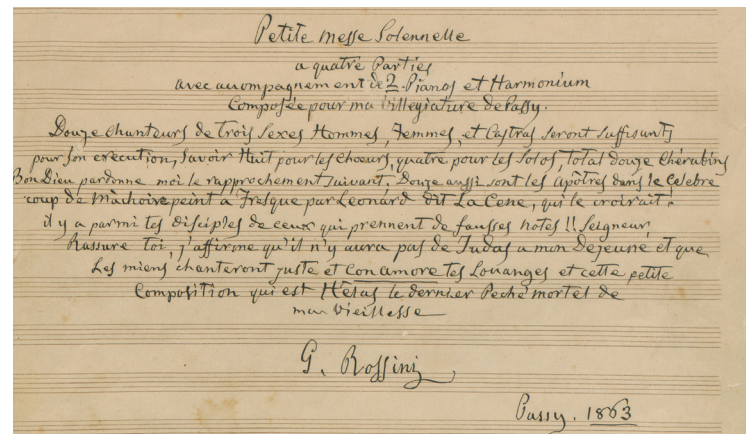 Petite Messe Solennelle
a quatre Parties
avec accompagnement de 2 Pianos et Harmonium
Composée pour ma villegiature de Passy.
Douze Chanteurs de trois Sexes Hommes, Femmes, et Castras seront suffisants
pour son execution, Savoir Huit pour les chœurs, quatre pour les Solos, total douze Chérubins
Bon Dieu pardonne moi le rapprochement suivant. Douze aussi sont les Apôtres dans le Celebre
coup de Mâchoire peint a Fresque par Leonard dit La Cene, qui le croirait!
il y a parmi tes disciples de ceux qui prennent de fausses notes!! Seigneur,
Rassure toi, j'affirme qu'il n'y aura pas de Judas a mon Dejeuné et que
Les miens chanteront juste et con amore tes Louanges et cette petite
Composition qui est Hélas le dernier Peché mortel de
ma vieillesse
G. Rossini
Passy. 1863